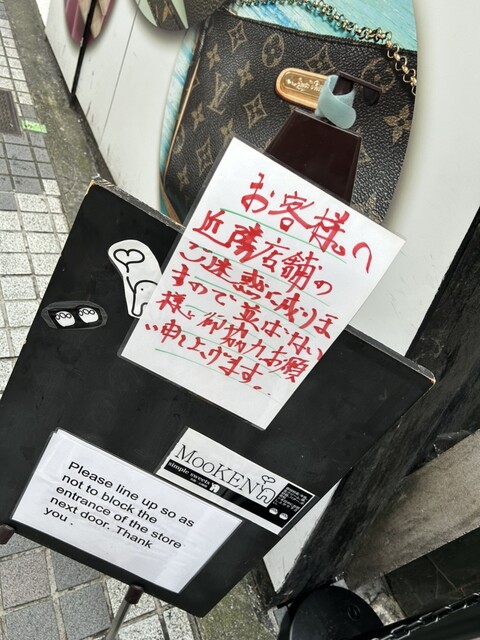 お客様へ
近隣店舗の
ご迷惑に成りま
すので、並ばない
様に御協力お願
い申し上げます。
MOOKEN
simple sweets
Please line up so as
not to block the
entrance of the store
next door. Thank
you .